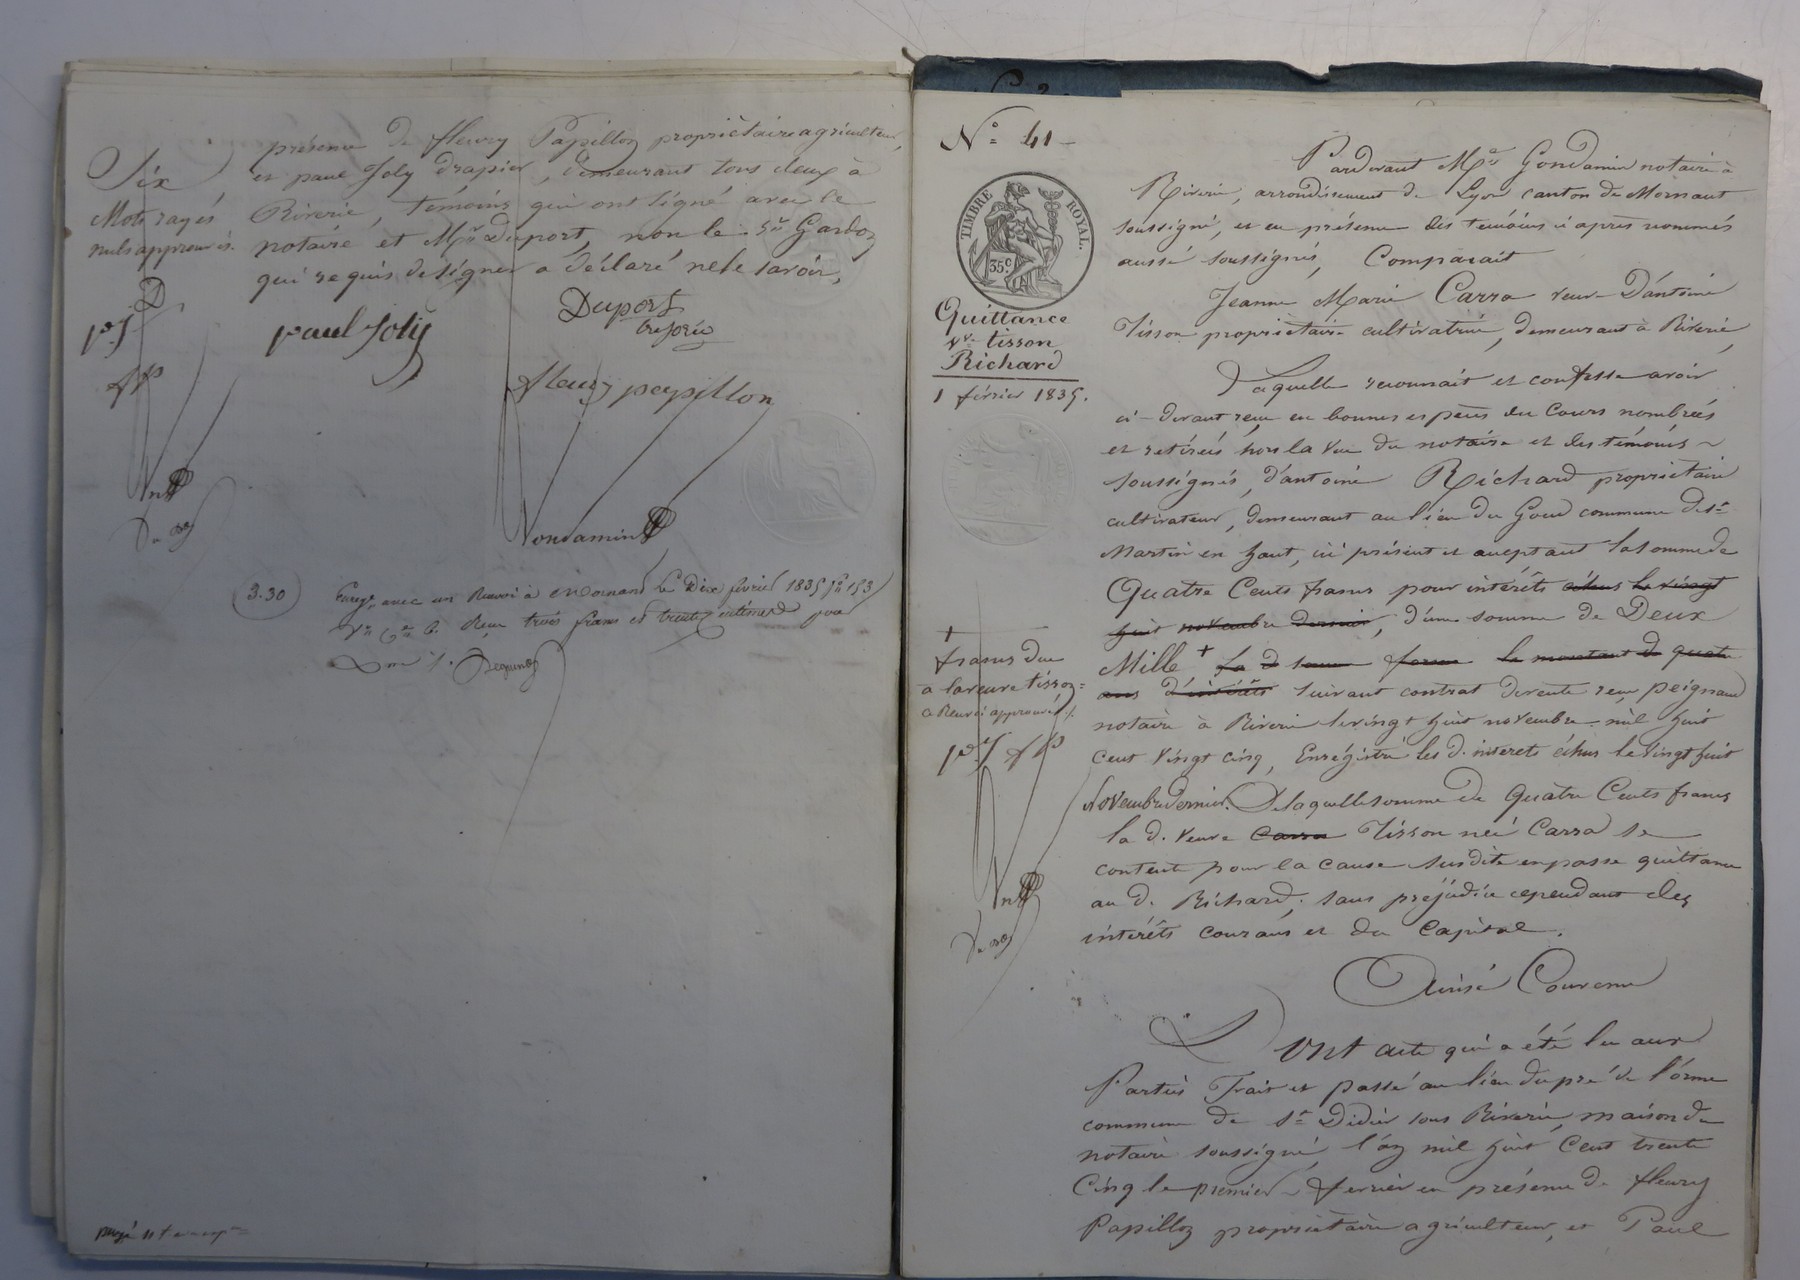 présence de fleury Papillon propriétaire agriculteur,
et paul Joly drapier, demeurant tous deux à
Riverie, témoins qui ont signé avec le
notaire et Mr Duport, non le sr Gardon
qui requis de signer a déclaré ne le savoir,
Six
Mots rayés
nuls approuvés.
D
p.J
fp
paul Joly
Duport
fleury papillon
Gondamin
3.30
Enregé avec un Renvoi à Mornand le Dix février 1835 fo 153
Vo Ce 6. Reçu trois francs et trente centimes pour
N° 41
TIMBRE ROYAL.
35 c
Quittance
ve tisson
Richard
1 février 1835.
Pardevant Me Gondamin notaire à
Riverie, arrondissement de Lyon canton de Mornant
soussigné, et en présence des témoins ci après nommés
aussi soussignés, Comparait
Jeanne Marie Carra veuve D'antoine
Tisson propriétaire cultivatrice, demeurant à Riverie,
Laquelle reconnait et confesse avoir
ci-devant reçu en bonnes espèces du Cours nombrées
et retirées hors la vue du notaire et des témoins ~
soussignés, d'antoine Richard propriétaire
cultivateur, demeurant au lieu du Goud commune de St
Martin en haut, ici présent et acceptant la somme de
Quatre Cents francs pour intérêts échus le vingt
huit novembre dernier, d'une somme de Deux
Mille + la d somme forme le montant d quatre
ans d'intérêts suivant contrat de vente reçu peignaud
notaire à Riverie le vingt huit novembre mil huit
cent vingt cinq, Enrégistré les d. interets échus le vingt huit
Novembre dernier. De laquelle somme de Quatre Cents francs
la d. veuve Carra Tisson née Carra se
contente pour la cause susdite en passe quittance
au d. Richard, sans préjudice cependant des
intérêts courans et du Capital.
+
francs due
à la veuve tisson
a Renvoi approuvé ./.
p.J fp
Ainsi Convenu
Dont acte qui a été lu aux
Parties Fait et passé au lieu du pré de l'orme
commune de St Didier sous Riverie, maison du
notaire soussigné, l'an mil huit Cent trente
Cinq le premier ~ fevrier en présence de fleury
Papillon propriétaire agriculteur, et Paul